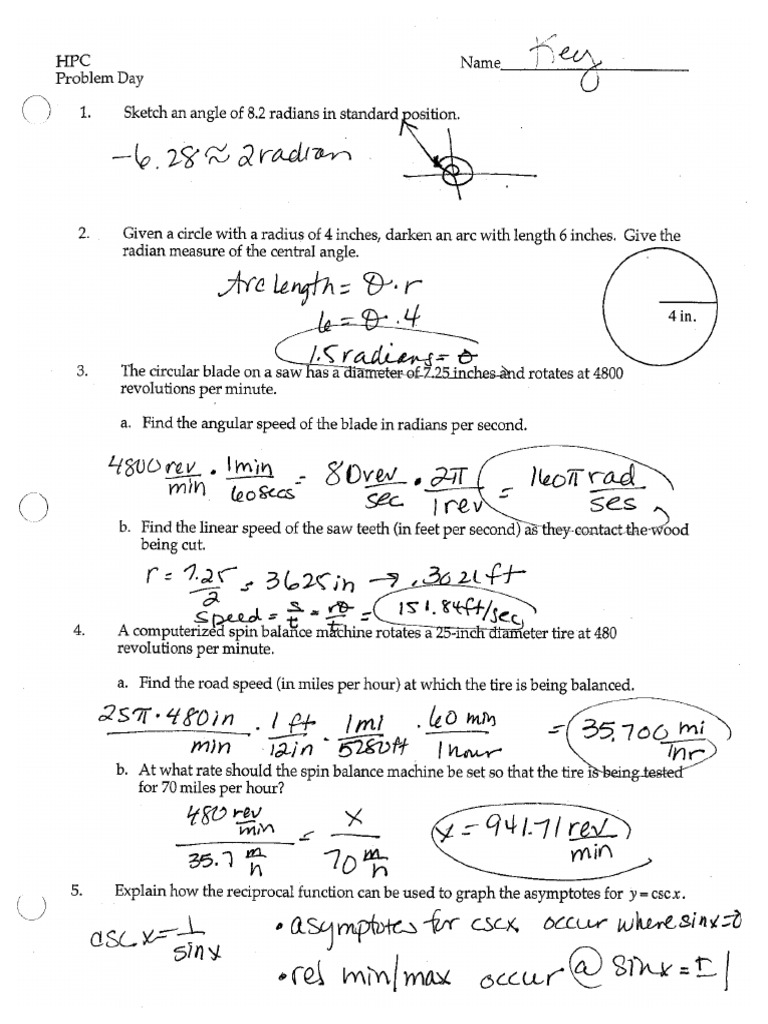 HPC
Name Key
Problem Day
1. Sketch an angle of 8.2 radians in standard position.
-6.28 ≈ 2 radian
2. Given a circle with a radius of 4 inches, darken an arc with length 6 inches. Give the
radian measure of the central angle.
Arc length = θ · r
6 = θ · 4
4 in.
1.5 radians = θ
3. The circular blade on a saw has a diameter of 7.25 inches and rotates at 4800
revolutions per minute.
a. Find the angular speed of the blade in radians per second.
4800 rev/min · 1 min/60 secs = 80 rev/sec · 2π/1 rev = 160π rad/ses
b. Find the linear speed of the saw teeth (in feet per second) as they contact the wood
being cut.
r = 7.25/2 = 3625 in → .3021 ft
speed = s/t = rθ/t = 151.84 ft/sec
4. A computerized spin balance machine rotates a 25-inch diameter tire at 480
revolutions per minute.
a. Find the road speed (in miles per hour) at which the tire is being balanced.
25π · 480 in/min · 1 ft/12 in · 1 mi/5280 ft · 60 min/1 hour = 35.700 mi/hr
b. At what rate should the spin balance machine be set so that the tire is being tested
for 70 miles per hour?
480 rev/min / 35.7 m/h = x / 70 m/h
x = 941.71 rev/min
5. Explain how the reciprocal function can be used to graph the asymptotes for y = csc x.
csc x = 1/sin x
• asymptotes for csc x occur where sin x = 0
• rel min/max occur @ sin x = ±1